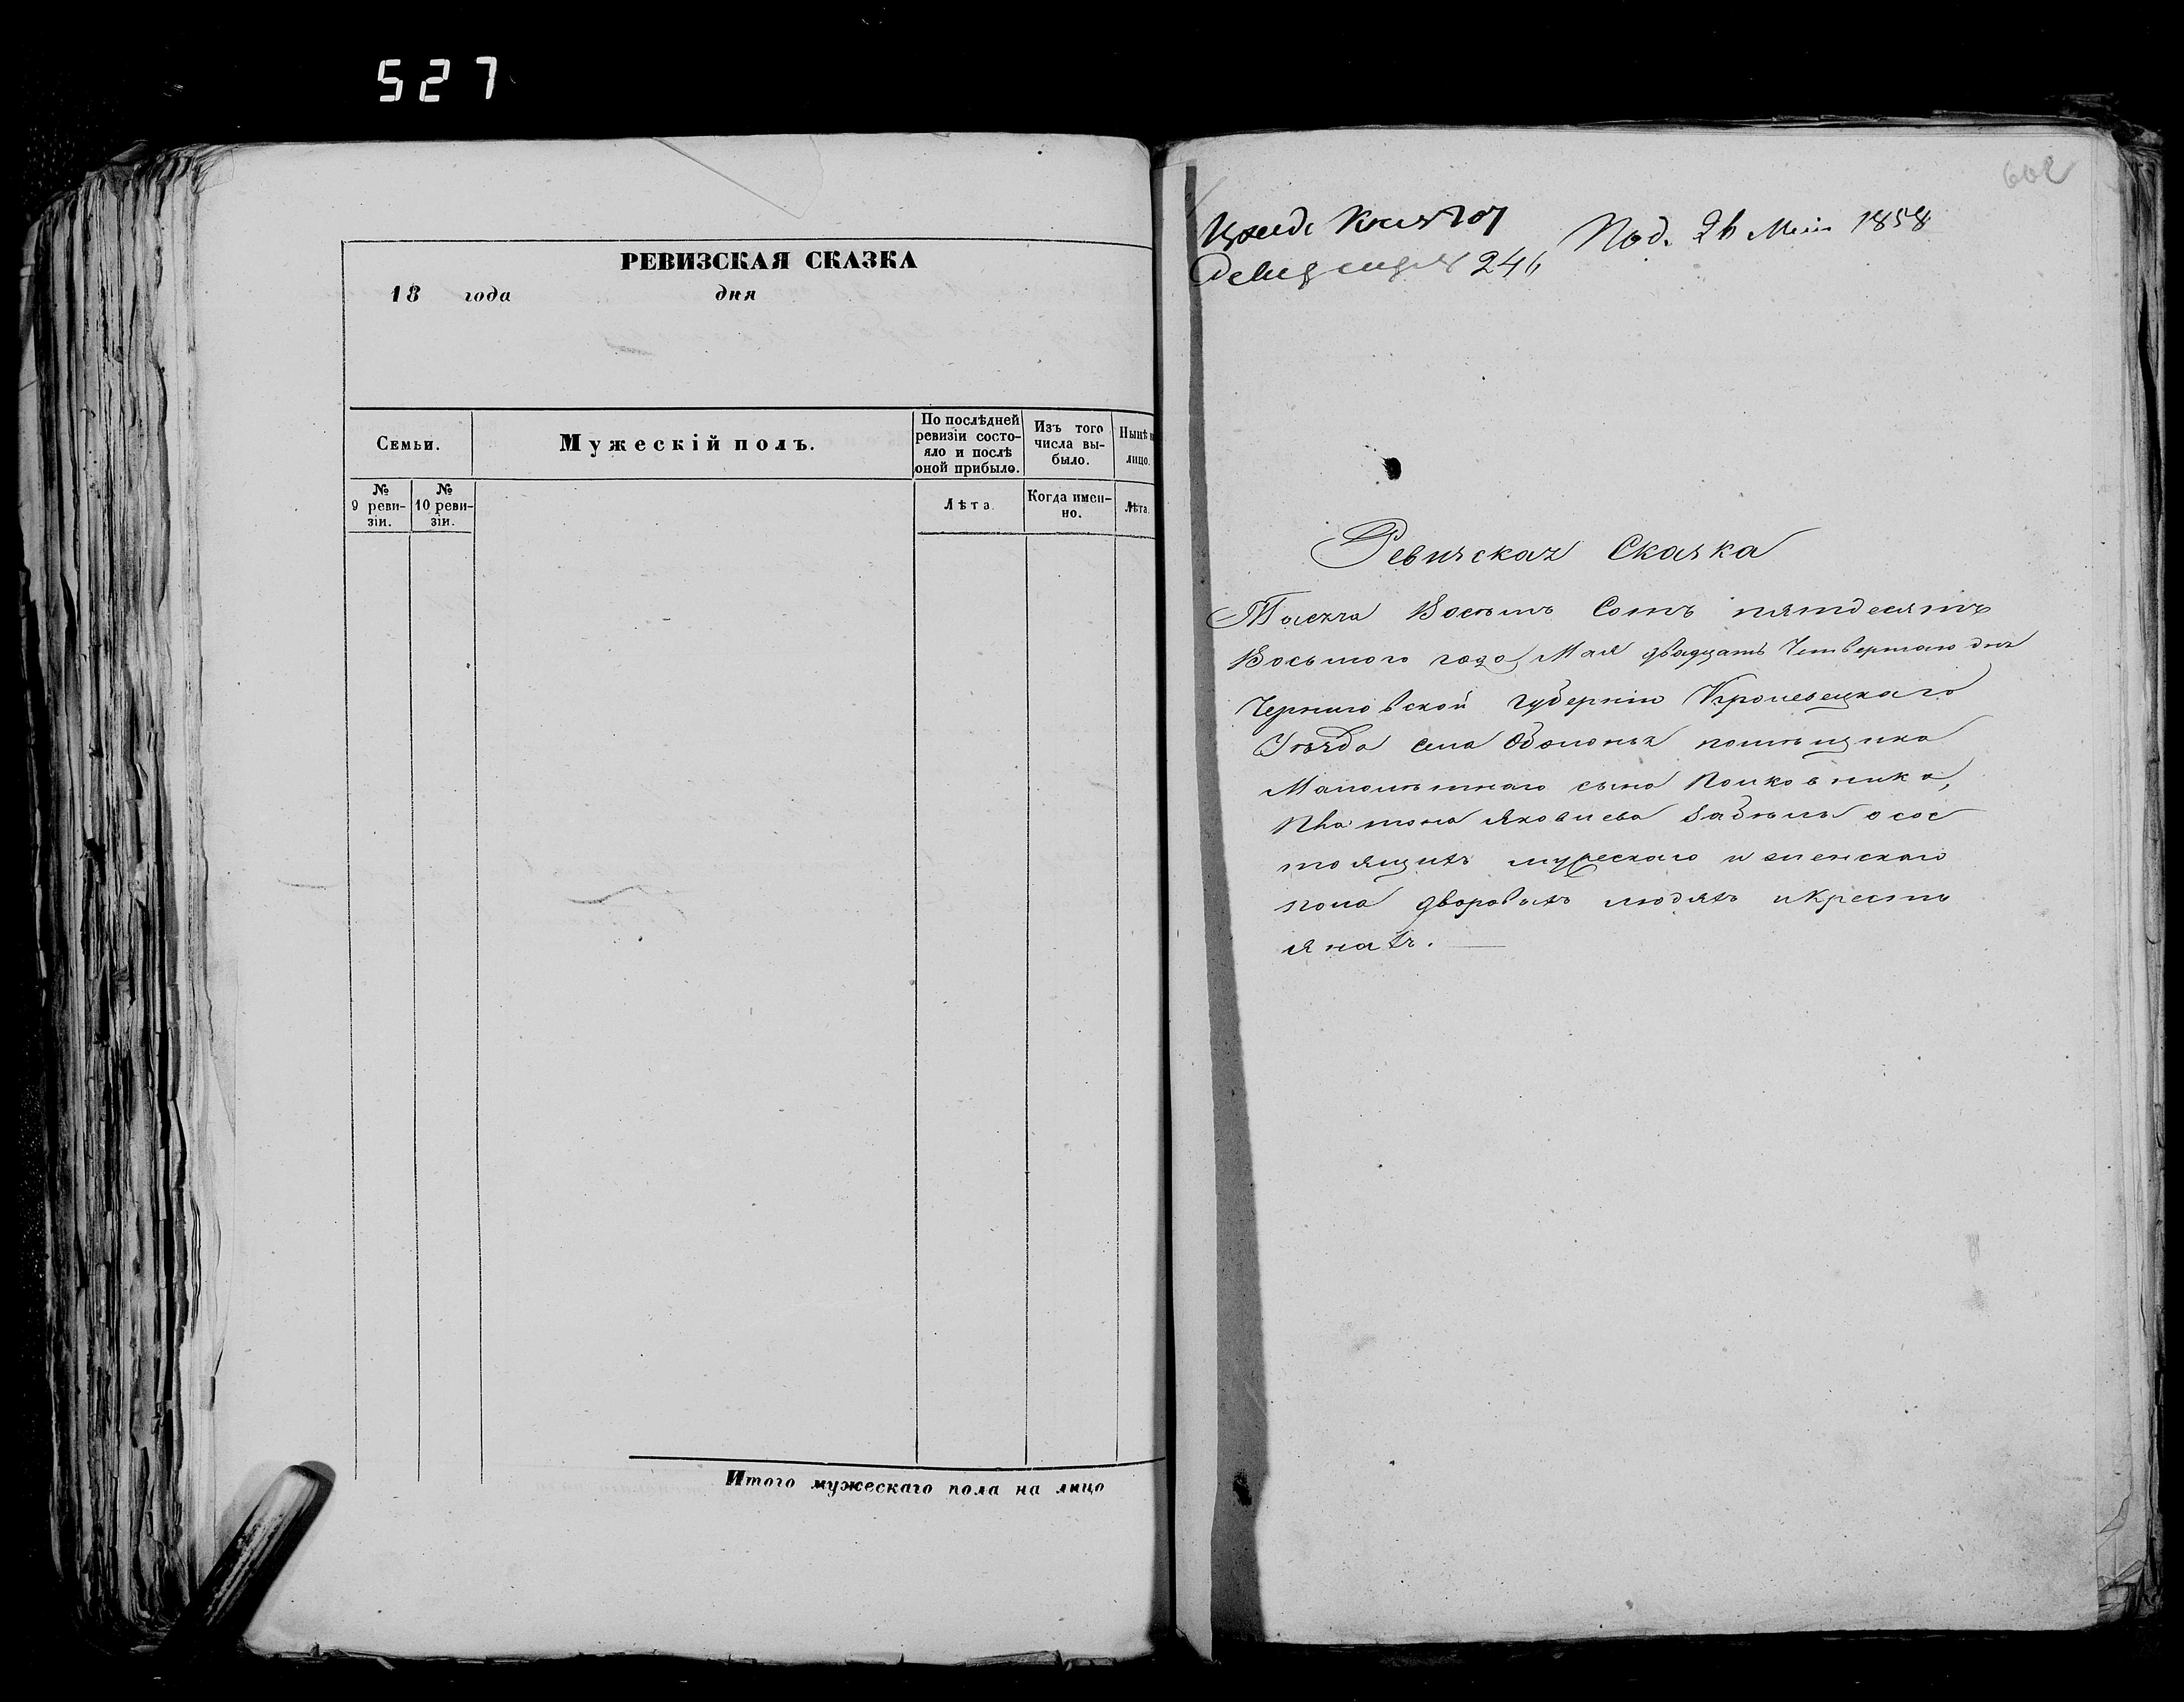 527
РЕВИЗСКАЯ СКАЗКА
18 года дня
Семьи.
Мужескій полъ.
По послѣдней ревизіи состояло и послѣ оной прибыло.
Изъ того числа выбыло.
Нынѣ
лицо.
№ 9 ревизіи.
№ 10 ревизіи.
Лѣта.
Когда именно.
Лѣта.
Итого мужескаго пола на лицо
602
Под. 26 Маія 1858
246
Ревизская Сказка
Тысяча Восемь Сотъ пятдесятъ
Восьмого года, Мая двадцать Четвертаго дня
Черниговской Губерніи Кролевецкаго
Уѣзда села Оболонья помѣщика
Малолѣтнаго сына Полковника,
Платона Яковлева Забѣлы о сос
тоящихъ мужескаго и женскаго
пола дворовыхъ людяхъ и Кресть
янахъ.